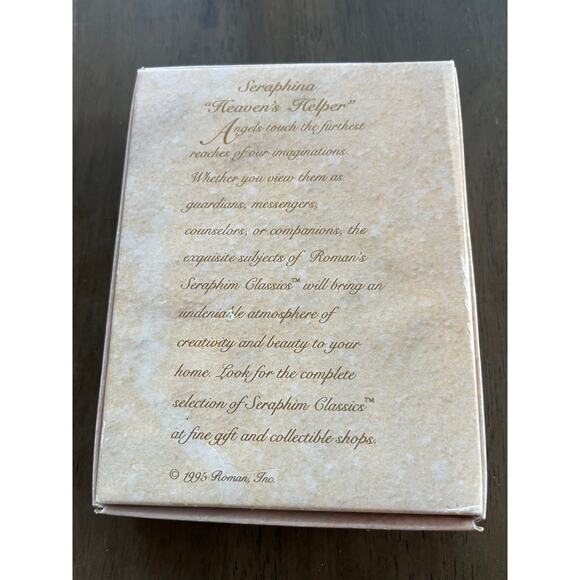 Seraphina
"Heaven's Helper"
Angels touch the furthest
reaches of our imaginations.
Whether you view them as
guardians, messengers,
counselors, or companions, the
exquisite subjects of Roman's
Seraphim Classics™ will bring an
undeniable atmosphere of
creativity and beauty to your
home. Look for the complete
selection of Seraphim Classics™
at fine gift and collectible shops.
© 1995 Roman, Inc.